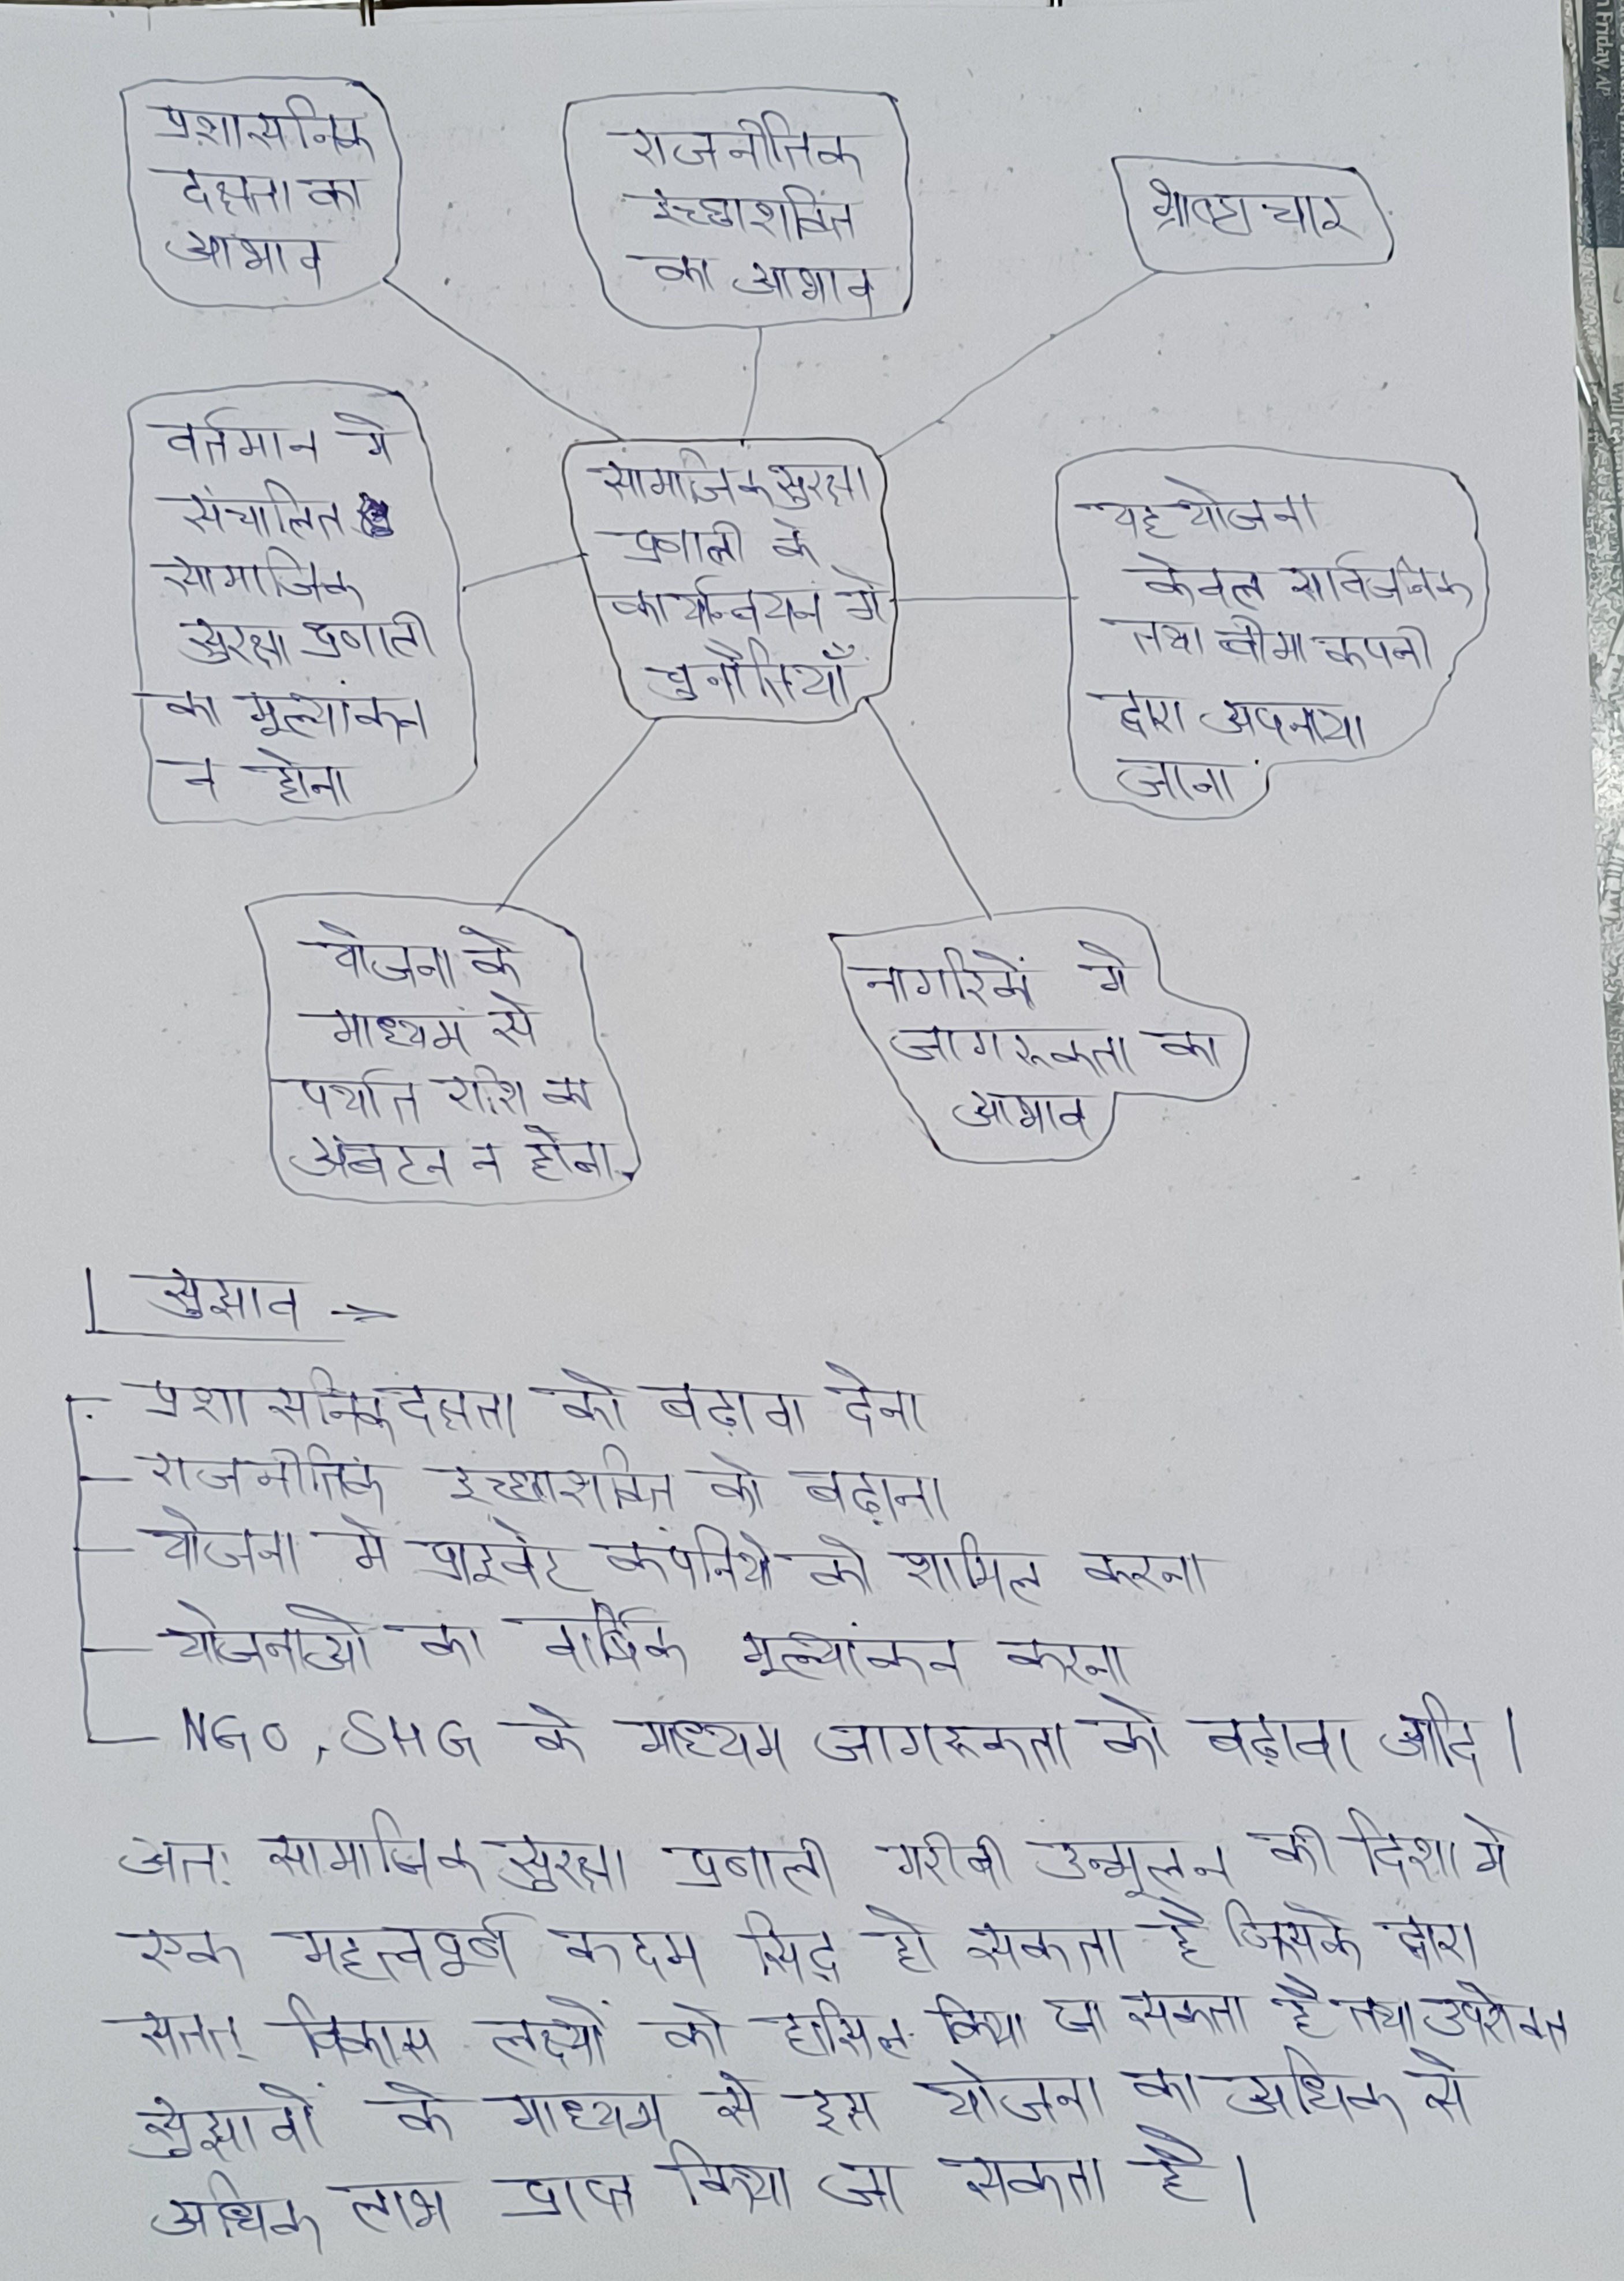 प्रशासनिक
दक्षता का
आभाव
राजनीतिक
इच्छाशक्ति
का आभाव
भ्रष्टाचार
वर्तमान मे
संचालित
सामाजिक
सुरक्षा प्रणाली
का मूल्यांकन
न होना
सामाजिक सुरक्षा
प्रणाली के
कार्यान्वयन मे
चुनौतियाँ
यह योजना
केवल सार्वजनिक
तथा बीमा कंपनी
द्वारा अपनाया
जाना
योजना के
माध्यम से
पर्याप्त राशि का
अबंटन न होना
नागरिकों मे
जागरूकता का
आभाव
सुझाव →
प्रशासनिक दक्षता को बढ़ावा देना
राजनीतिक इच्छाशक्ति को बढ़ाना
योजना मे प्राइवेट कंपनियो को शामिल करना
योजनाओ का वार्षिक मूल्यांकन करना
NGO, SHG के माध्यम जागरूकता को बढ़ावा आदि।
अतः सामाजिक सुरक्षा प्रणाली गरीबी उन्मूलन की दिशा मे
एक महत्वपूर्ण कदम सिद्ध हो सकता है जिसके द्वारा
सतत् विकास लक्ष्यों को हासिल किया जा सकता है तथा उपरोक्त
सुझावों के माध्यम से इस योजना का अधिक से
अधिक लाभ प्राप्त किया जा सकता है।